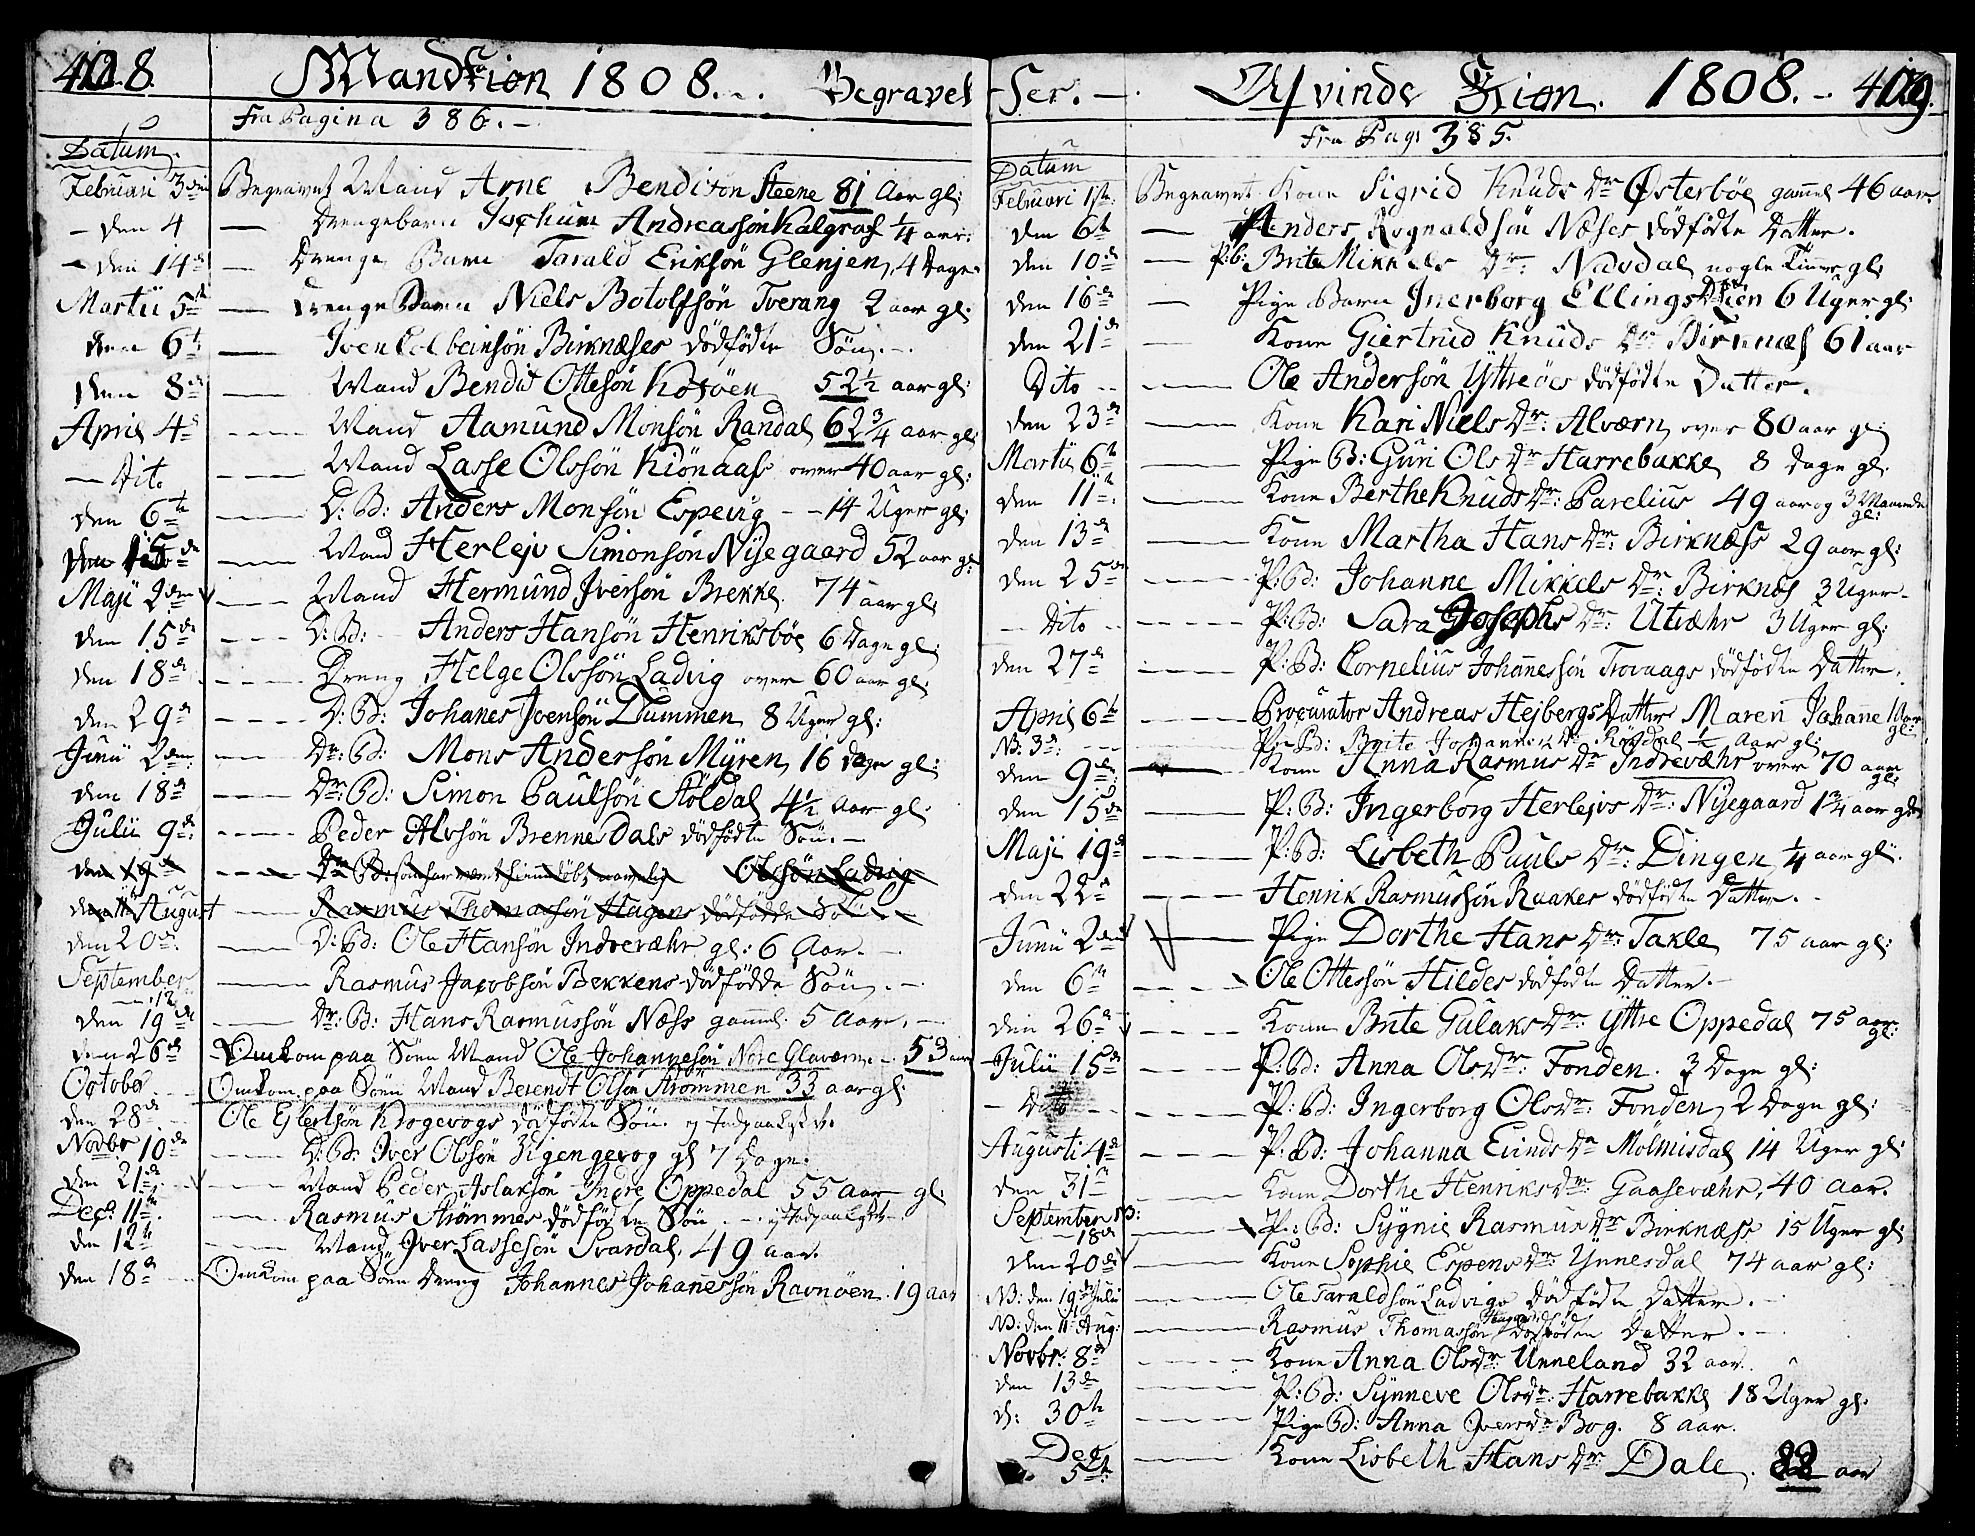 408. Mandkiön 1808. Begravel
Fra Pagina 386.
Datum.
Februari 3die Begravet Mand Arne Bendixon Steene 81 Aar gl:
den 4 Drengebarn Jochum Andreassön Kalgraf 1/4 aar:
den 14de Drenge Barn Tarald Eriksön Glenjen, 4 Dage
Martii 5te Drenge Barn Niels Botolfsön Tverang 2 aar gl.
den 6te Iven Colbeinsön Birknæses dödfödte Sön.
den 8de Mand Bendix Ottesön Kotöen 52 1/2 aar gl:
April 4de Mand Aamund Monsön Randal 62 3/4 aar gl:
Dito Mand Lasse Olssön Kiönaas over 40 aar gl:
den 6te D: B: Anders Monsön Espeng 14 Uger gl:
den 15de Mand Herlejv Simonsön Nÿegaard 52 aar gl:
Maji 2den Mand Hermund Iversön Brekke 74 aar gl:
den 15de D: B: Anders Hansön Henriksböe 6 Dage gl:
den 18de Dreng Helge Olssön Ladvig over 60 aar gl:
den 29de D: B: Johanes Ivensön Dummen 8 Uger gl:
Junii 2den Dr: B: Mons Andersön Mÿren 16 Dage gl:
den 18de Dr: B: Simon Paulsön Stöldal 4 1/2 Aar gl:
Julii 9de Peder Alvsön Brenne Dals dödfödte Sön.
den 19de Dr: B: Olssön Ladvig
August Rasmus Thomassön Hagens dödfödde Sön
den 20de D: B: Ole Hansön Indrevære gl: 6 Aar.
September 12 Rasmus Jacobsön Bekkens dödfödde Sön
den 19de Dr: B: Hans Rasmussön Næss gamel 5 Aar.
den 26de Omkom paa Söen Mand Ole Johannesön Nore Glaværn 53 aar
Octobr Omkom paa Söen Mand Berendt Olsön Strömmen 33 aar gl:
den 28de Ole Elertsön Krogevogs dödfödte Sön.
Novbr 10de D: B: Iver Olssön Risengevog gl 7 Dage
den 21de Mand Peder Aslaksön Indre Oppedal 55 aar gl:
Decb: 11te Rasmus Strömmes dödfödte Sön
den 12te Mand Iver Lassesön Svardal, 49 aar.
den 18de Omkom paa Söen Dreng Johannes Johannessön Ravnöen 19 aar
ser. Qvinde Kiön. 1808. 409.
Fra Pag: 385.
Datum
Februari 1ste Begravet Kone Sigrid Knuds Dr Østerböe gammel 46 aar.
den 6te Anders Rognaldsön Næses dödfödte Datter.
den 10de P: b: Brite Mikkels Dr: Nasdal nogle Timer gl:
den 16de Pige Barn Inerborg Ellings Dr Lien 6 Uger gl:
den 21de Kone Giertrud Knuds Dr: Birknæs 61 aar
Dito Ole Andersön Ÿttreöes dödfödte Datter.
den 23de Kone Kari Niels Dr: Alværn over 80 aar gl:
Martii 6te Pige B: Guri Ols Dr Harrebakke 8 Dage gl.
den 11te Kone Berthe Knuds Dr: Parelius 49 aar og 3 Maaneder gl:
den 13de Kone Martha Hans Dr: Birknæss 29 aar gl:
den 25de P: B: Johanne Mikkels Dr: Birknæs 3 Uger
Dito P: B: Sara Josephs Dr: Utvæhr 3 Uger gl:
den 27de P: B: Cornelius Johannessön Trovaags dödfödte Datter.
April 6te Procurator Andreas Hejbergs Datter Maren Johanne 1 Aar gl:
N: 3de: Pige B: Brite Johannes Dr: Risdal 1/2 Aar gl:
den 9de: Kone Anna Rasmus Dr Indreværhr over 70 aar gl:
den 15de P: B: Ingerborg Herlejvs Dr: Nÿegaard 1 3/4 aar gl:
Maji 19de P: B: Lisbeth Pauls Dr: Dingen 1/4 aar gl:
den 22de Henrik Rasmussön Raakes dödfödte Datter.
Junii 2den Pige Dorthe Hans Dr: Takle 75 aar gl:
den 6te Ole Ottessön Hildes dödfödte Datter.
den 26de Kone Brite Gulaks Dr: Ÿttre Oppedal 75 aar gl:
Julii 15de P: B: Anna Ols Dr: Fonden. 3 Dage gl:
Dito P: B: Ingerborg Ols Dr: Fonden, 2 Dage gl:
Augusti 4de P: B: Johanna Evinds Dr Mölmisdal 14 Uger gl:
den 31te Kone Dorthe Henriks Dr: Gaaseværhr, 40 aar.
September 18de P: B: Sÿgnie Rasmus Dr Birknæss 15 Uger gl:
den 20de Kone Sophie Espens Dr Ÿnnesdal 74 aar gl:
NB: den 19de Julii Ole Taraldsön Ladvigs dödfödte Datter.
NB: den 11te Aug: Rasmus Thomassön Hagens dödfödte Datter.
Novbr: 8de Kone Anna Ols Dr: Unneland 32 aar.
den 13de P: B: Sÿnneve Ols Dr: Harrebakke 18 Uger gl:
d: 30te Pige B: Anna Ivers Dr Bog. 8 aar.
Dec 5te Kone Lisbeth Hans Dr: Dale. 88 aar